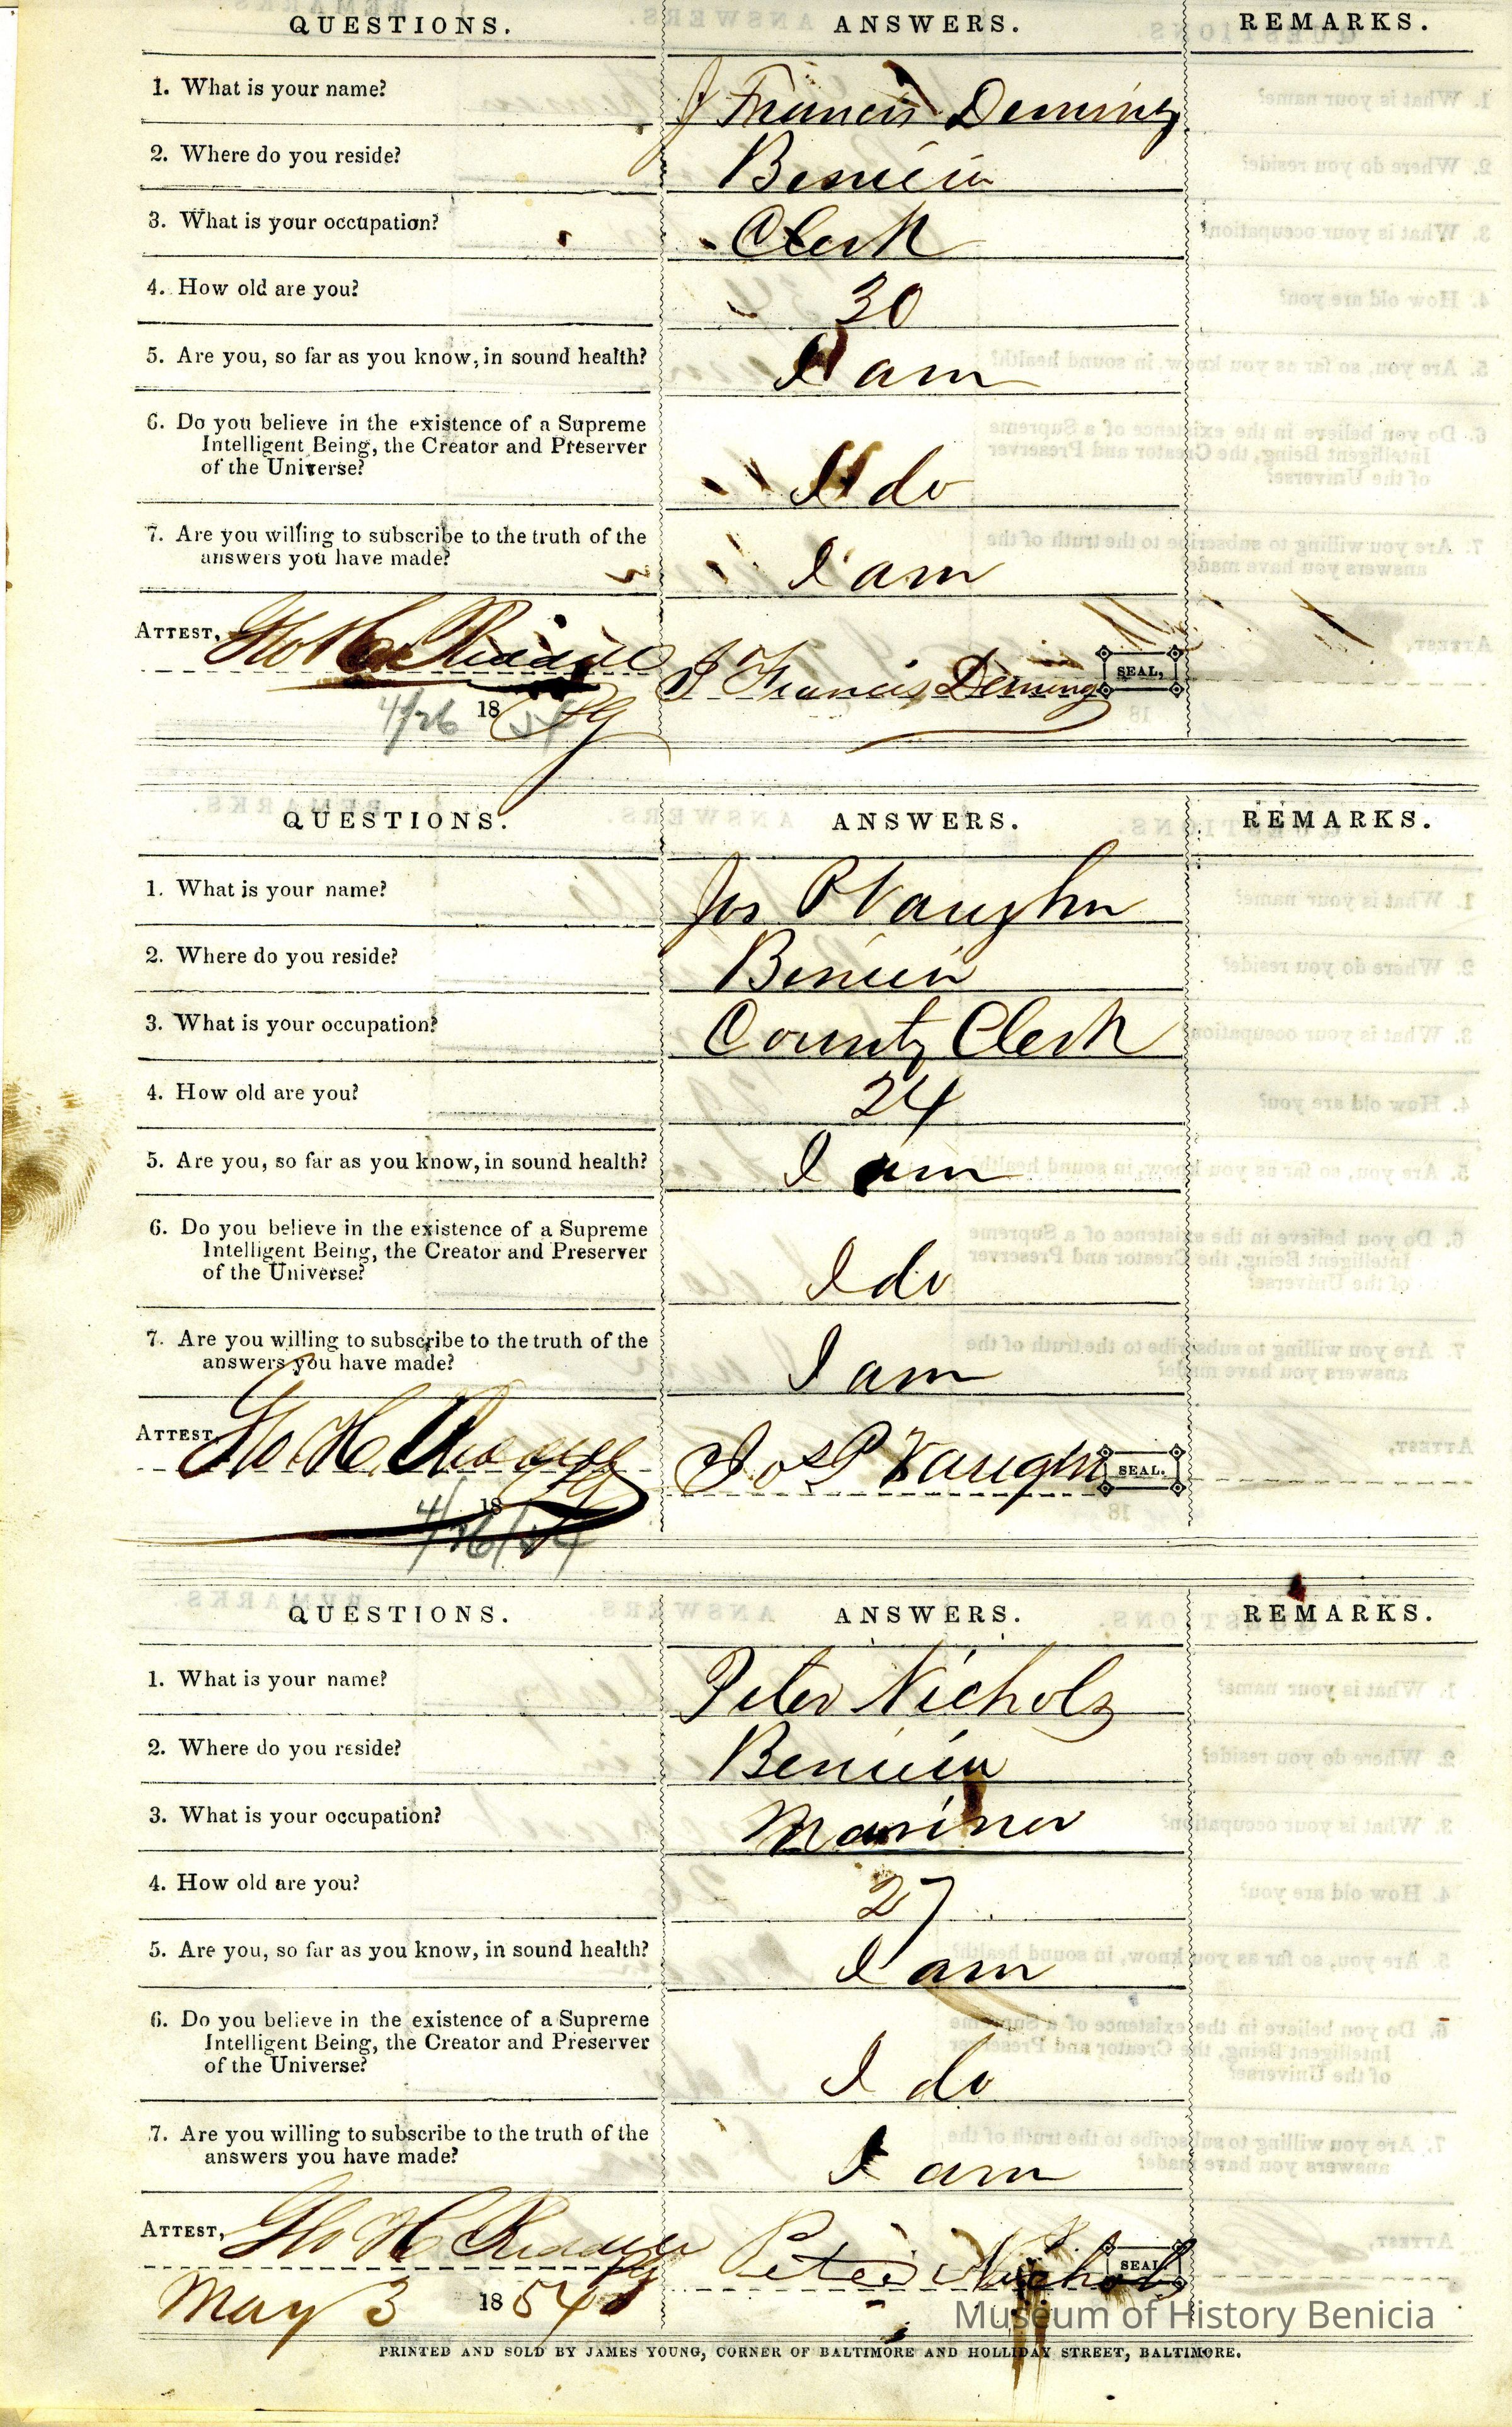 QUESTIONS. ANSWERS. REMARKS.
1. What is your name? J Francis Deming
2. Where do you reside? Benicia
3. What is your occupation? Clerk
4. How old are you? 30
5. Are you, so far as you know, in sound health? I am
6. Do you believe in the existence of a Supreme
Intelligent Being, the Creator and Preserver
of the Universe? I do
7. Are you willing to subscribe to the truth of the
answers you have made? I am
ATTEST, Geo H Riddell
J Francis Deming SEAL.
4/26 18 54
QUESTIONS. ANSWERS. REMARKS.
1. What is your name? Jos P Vaughn
2. Where do you reside? Benicia
3. What is your occupation? County Clerk
4. How old are you? 24
5. Are you, so far as you know, in sound health? I am
6. Do you believe in the existence of a Supreme
Intelligent Being, the Creator and Preserver
of the Universe? I do
7. Are you willing to subscribe to the truth of the
answers you have made? I am
ATTEST, Geo H Riddell
Jos P Vaughn SEAL.
18
4/26/54
QUESTIONS. ANSWERS. REMARKS.
1. What is your name? Peter Nichols
2. Where do you reside? Benicia
3. What is your occupation? Mariner
4. How old are you? 27
5. Are you, so far as you know, in sound health? I am
6. Do you believe in the existence of a Supreme
Intelligent Being, the Creator and Preserver
of the Universe? I do
7. Are you willing to subscribe to the truth of the
answers you have made? I am
ATTEST, Geo H Riddell
Peter Nichols SEAL.
May 3 1854
Museum of History Benicia
PRINTED AND SOLD BY JAMES YOUNG, CORNER OF BALTIMORE AND HOLLIDAY STREET, BALTIMORE.